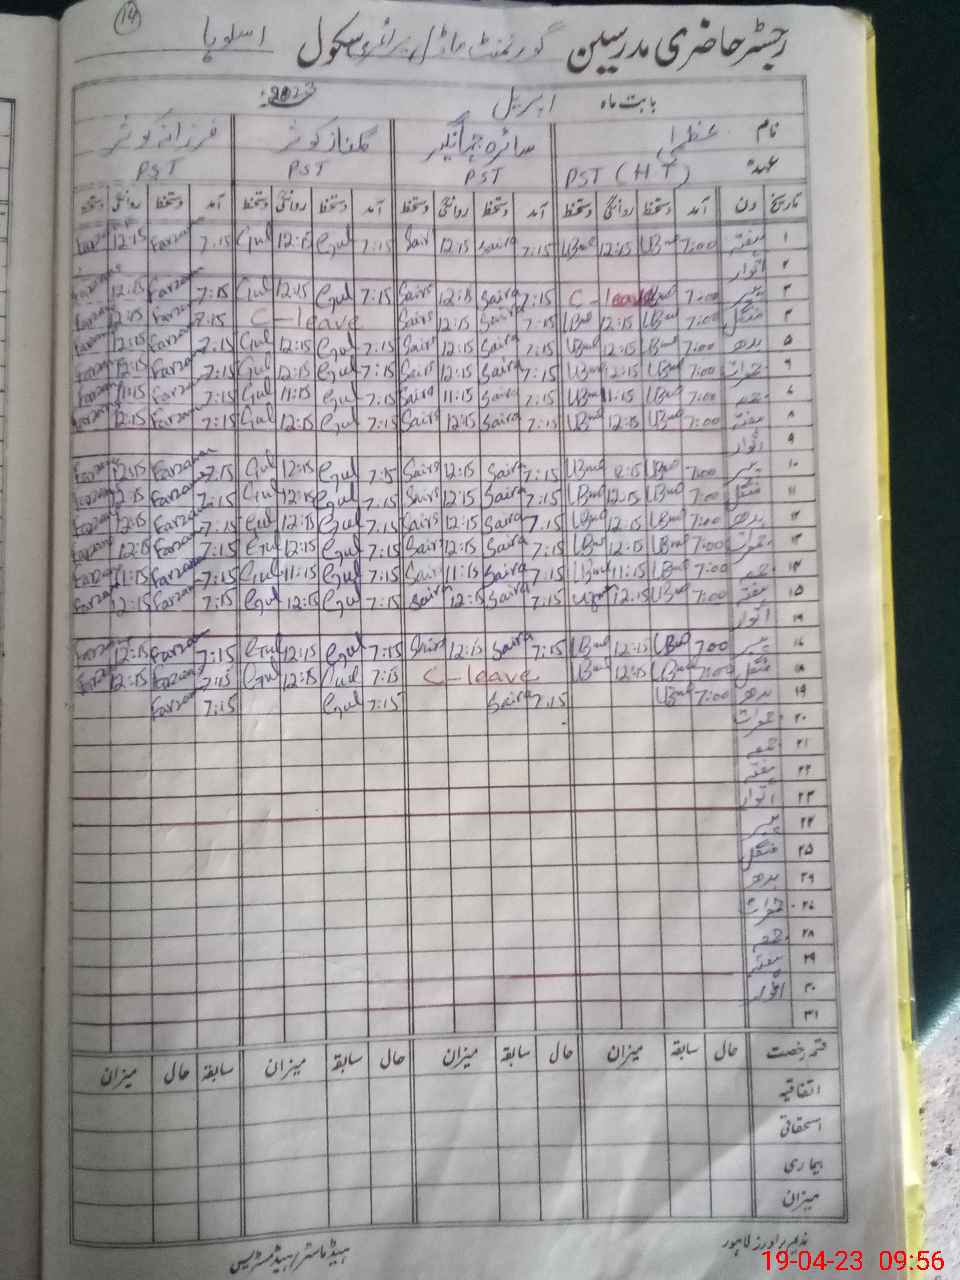 ۱۴
رجسٹر حاضری مدرسین گورنمنٹ ماڈل پرائمری سکول اسلوپا
بابت ماہ اپریل 2023ء
نام عظمیٰ سائرہ جہانگیر گلناز کوثر فرزانہ کوثر
عہدہ PST (HT) PST PST PST
تاریخ دن آمد دستخط روانگی دستخط آمد دستخط روانگی دستخط آمد دستخط روانگی دستخط آمد دستخط روانگی دستخط
۱ ہفتہ 7:00 12:15 7:15 Saira 12:15 Saira 7:15 Gul 12:15 Gul 7:15 Farzana 12:15 Farzana
۲ اتوار
۳ پیر 7:00 C-leave 7:15 Saira 12:15 Saira 7:15 Gul 12:15 Gul 7:15 Farzana 12:15 Farzana
۴ منگل 7:00 12:15 7:15 Saira 12:15 Saira C-leave 7:15 Farzana 12:15 Farzana
۵ بدھ 7:00 12:15 7:15 Saira 12:15 Saira 7:15 Gul 12:15 Gul 7:15 Farzana 12:15 Farzana
۶ جمعرات 7:00 12:15 7:15 Saira 12:15 Saira 7:15 Gul 12:15 Gul 7:15 Farzana 12:15 Farzana
۷ جمعہ 7:00 11:15 7:15 Saira 11:15 Saira 7:15 Gul 11:15 Gul 7:15 Farzana 11:15 Farzana
۸ ہفتہ 7:00 12:15 7:15 Saira 12:15 Saira 7:15 Gul 12:15 Gul 7:15 Farzana 12:15 Farzana
۹ اتوار
۱۰ پیر 7:00 12:15 7:15 Saira 12:15 Saira 7:15 Gul 12:15 Gul 7:15 Farzana 12:15 Farzana
۱۱ منگل 7:00 12:15 7:15 Saira 12:15 Saira 7:15 Gul 12:15 Gul 7:15 Farzana 12:15 Farzana
۱۲ بدھ 7:00 12:15 7:15 Saira 12:15 Saira 7:15 Gul 12:15 Gul 7:15 Farzana 12:15 Farzana
۱۳ جمعرات 7:00 12:15 7:15 Saira 12:15 Saira 7:15 Gul 12:15 Gul 7:15 Farzana 12:15 Farzana
۱۴ جمعہ 7:00 11:15 7:15 Saira 11:15 Saira 7:15 Gul 11:15 Gul 7:15 Farzana 11:15 Farzana
۱۵ ہفتہ 7:00 12:15 7:15 Saira 12:15 Saira 7:15 Gul 12:15 Gul 7:15 Farzana 12:15 Farzana
۱۶ اتوار
۱۷ پیر 7:00 12:15 7:15 Saira 12:15 Saira 7:15 Gul 12:15 Gul 7:15 Farzana 12:15 Farzana
۱۸ منگل 7:00 12:15 C-leave 7:15 Gul 12:15 Gul 7:15 Farzana 12:15 Farzana
۱۹ بدھ 7:00 7:15 Saira 7:15 Gul 7:15 Farzana
۲۰ جمعرات
۲۱ جمعہ
۲۲ ہفتہ
۲۳ اتوار
۲۴ پیر
۲۵ منگل
۲۶ بدھ
۲۷ جمعرات
۲۸ جمعہ
۲۹ ہفتہ
۳۰ اتوار
۳۱
قسم رخصت حال سابقہ میزان حال سابقہ میزان حال سابقہ میزان سابقہ حال میزان
اتفاقیہ
استحقاقی
بیماری
میزان
ندیم برادرز لاہور ہیڈ ماسٹر/ہیڈ مسٹریس
19-04-23 09:56